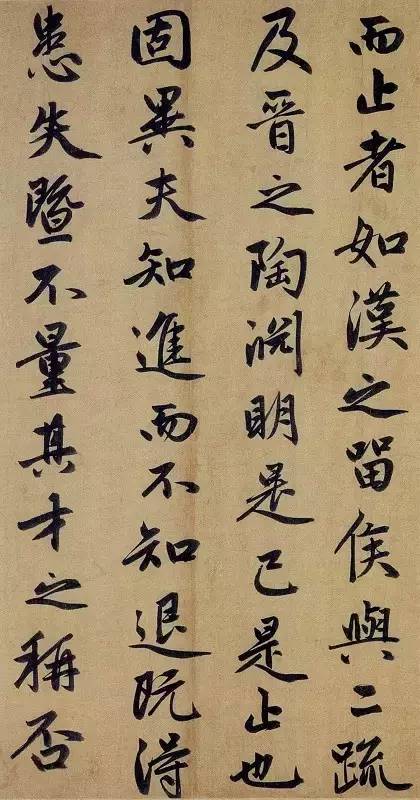 而止者如漢之留侯與二疏
及晉之陶渊明是已是止也
固異夫知進而不知退既得
患失暨不量其才之稱否